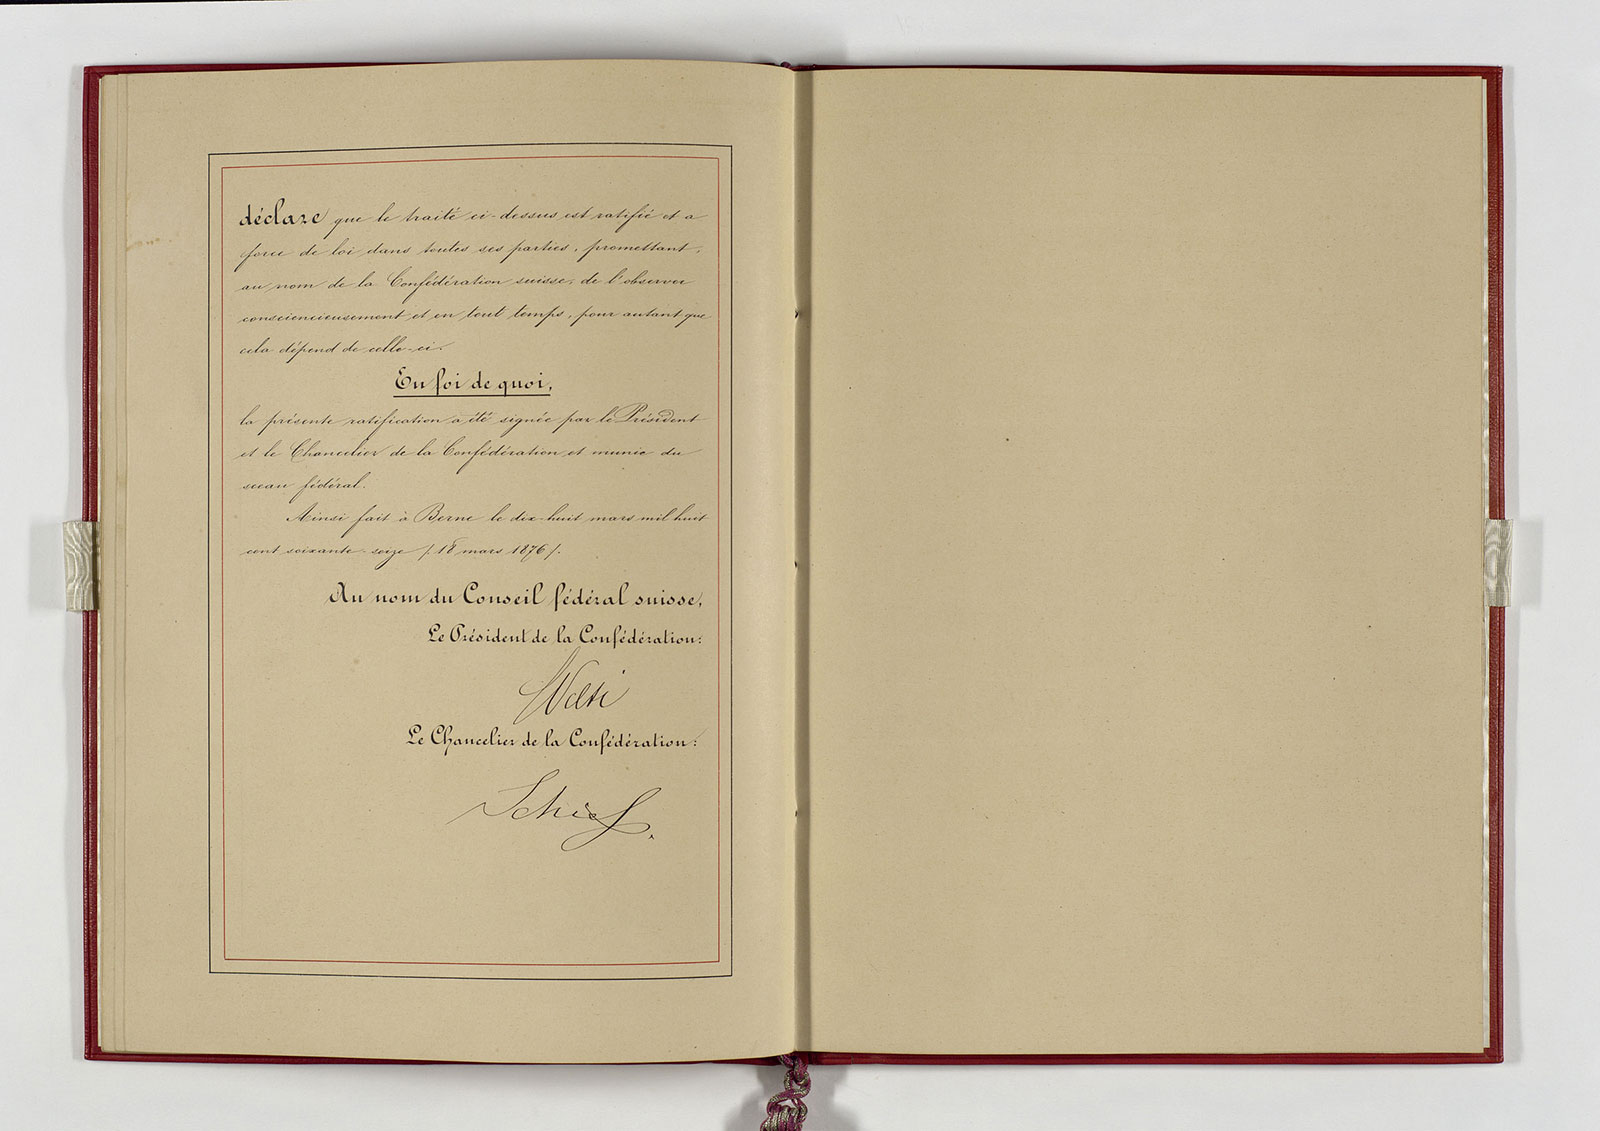 déclare que le traité ci-dessus est ratifié et a
force de loi dans toutes ses parties, promettant,
au nom de la Confédération suisse, de l'observer
consciencieusement et en tout temps, pour autant que
cela dépend de celle-ci.
En foi de quoi,
la présente ratification a été signée par le Président
et le Chancelier de la Confédération et munie du
sceau fédéral.
Ainsi fait à Berne le dix-huit mars mil huit
cent soixante-seize /18 mars 1876/.
Au nom du Conseil fédéral suisse,
Le Président de la Confédération:
Welti
Le Chancelier de la Confédération:
Schieß.